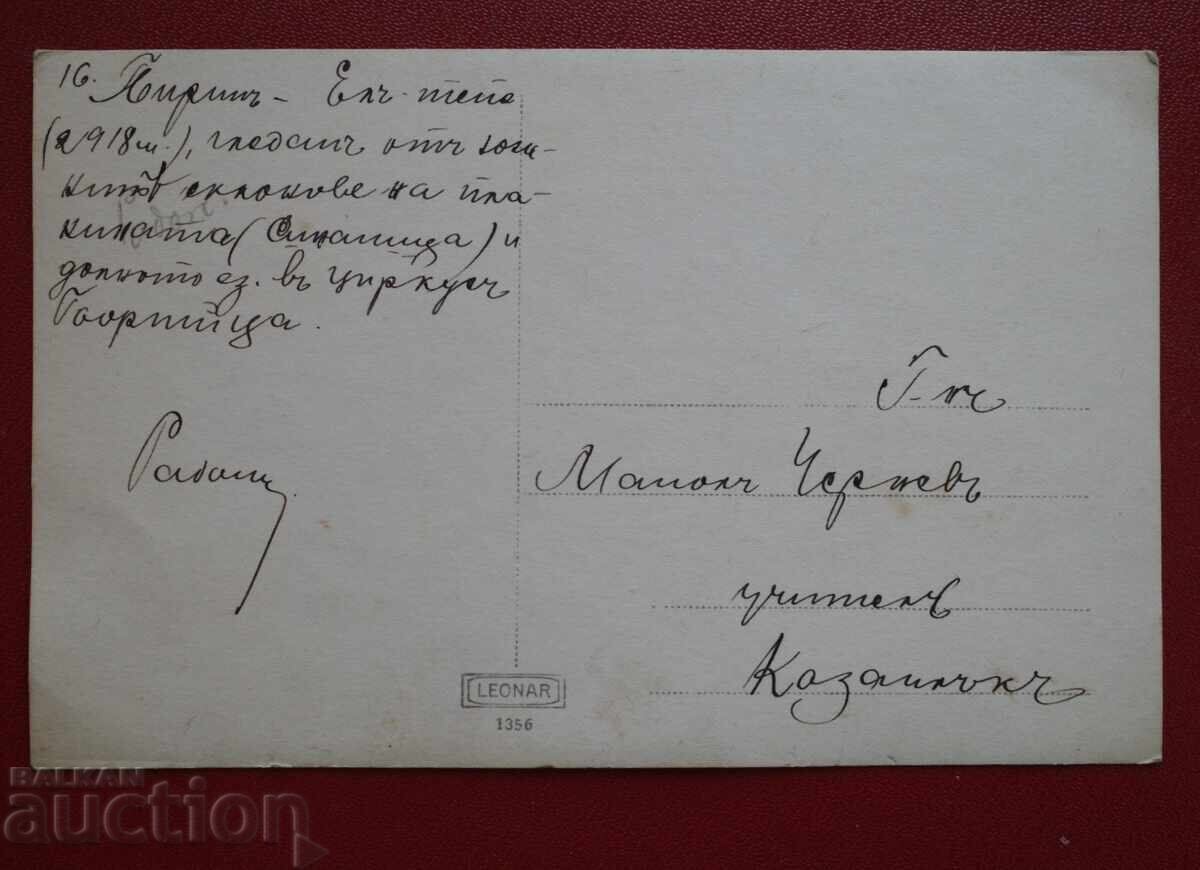 16. Пиринъ - Елъ-тепе
(2918 м.), гледанъ отъ южн-
нитѣ склонове на пла-
нината (Синаница) и
долното ез. въ циркусъ
Георгийца.
Г-нъ
Манолъ Черневъ
учитель
Казанлъкъ
LEONAR
1356
BALKAN
auction